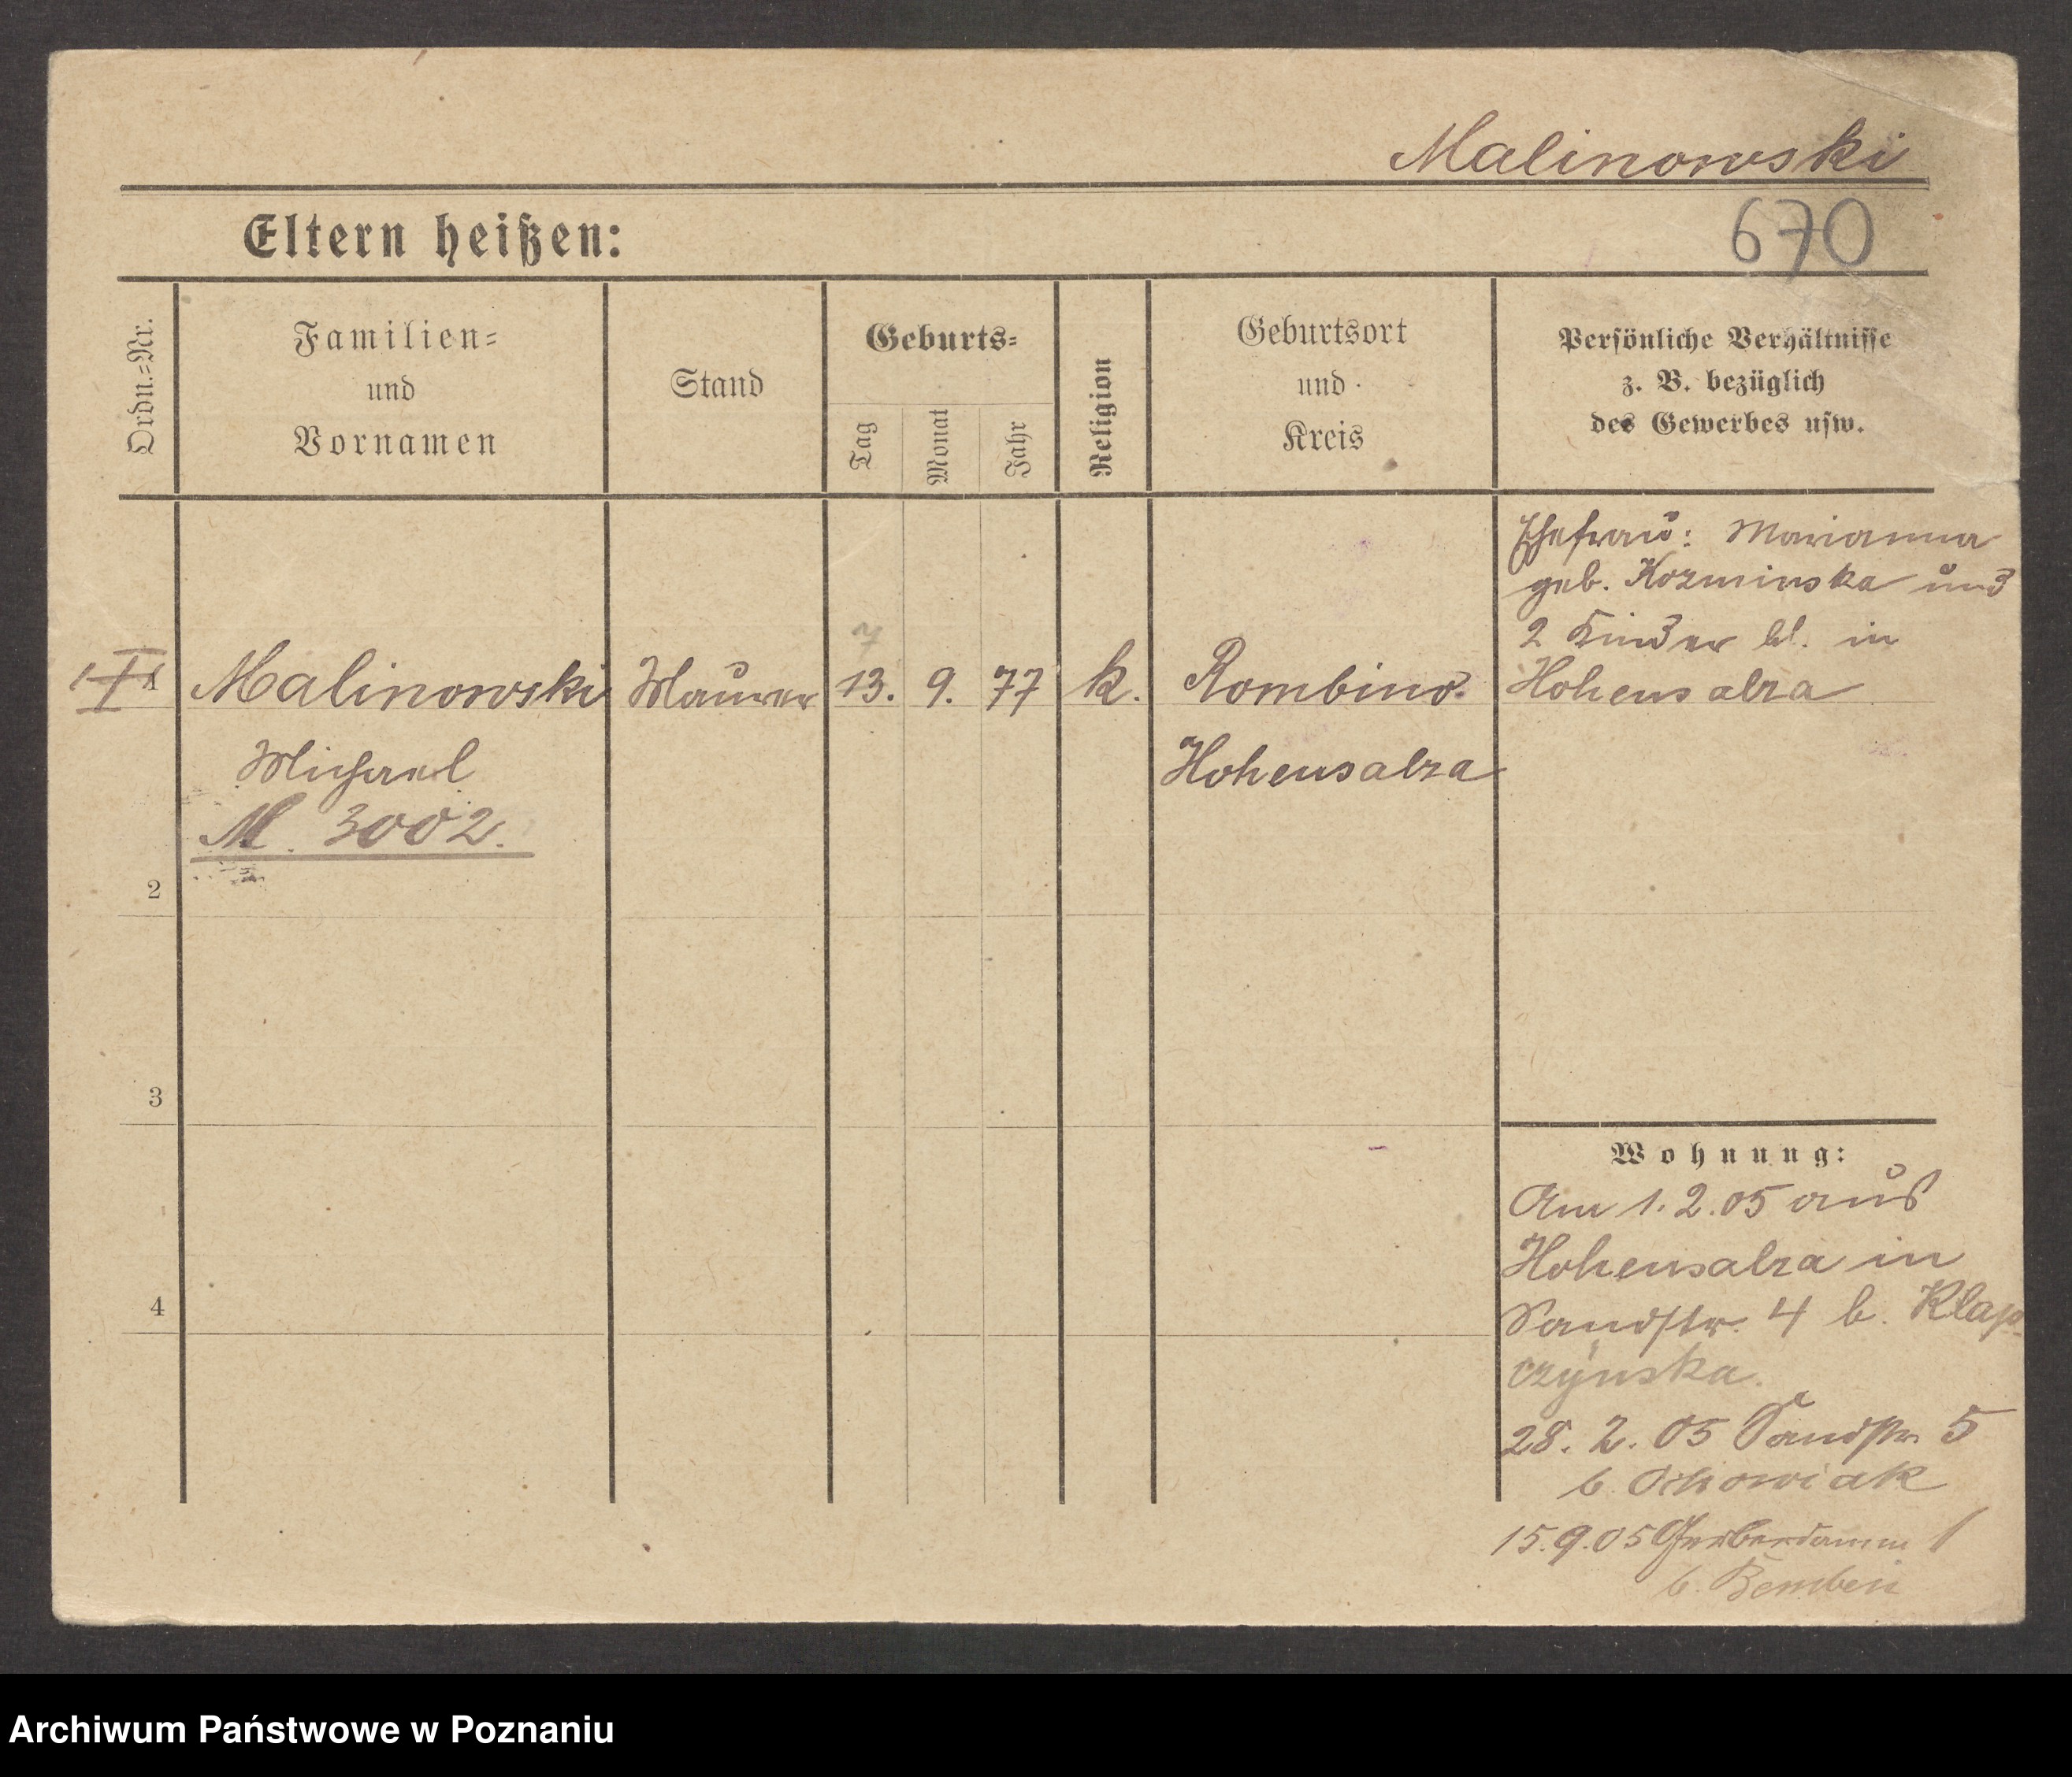 Malinowski
670
Eltern heißen:
Ordn.-Nr.
Familien-
und
Vornamen
Stand
Geburts-
Tag
Monat
Jahr
Religion
Geburtsort
und
Kreis
Persönliche Verhältnisse
z. B. bezüglich
des Gewerbes usw.
Ehefrau: Marianna
geb. Kozminska und
2 Kinder bl. in
Hohensalza
1
Malinowski
Maurer
7
13. 9. 77
k.
Rombino.
Michael
Hohensalza
M. 3002.
2
3
4
Wohnung:
Am 1.2.05 aus
Hohensalza in
Sandstr. 4 b. Klap-
czynska.
28. 2. 05 Sandstr 5
b
15.9.05 Gerberdamm 1
b. Bemben
Archiwum Państwowe w Poznaniu